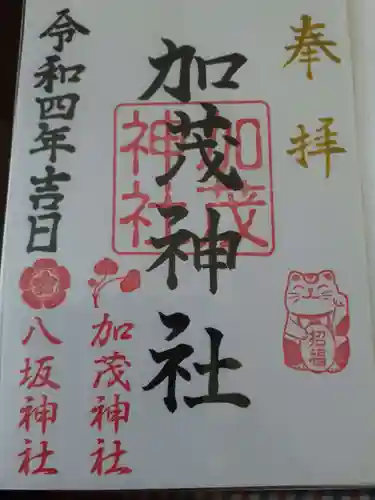 奉拝
加茂神社
加茂神社
招福
加茂神社
八坂神社
令和四年吉日